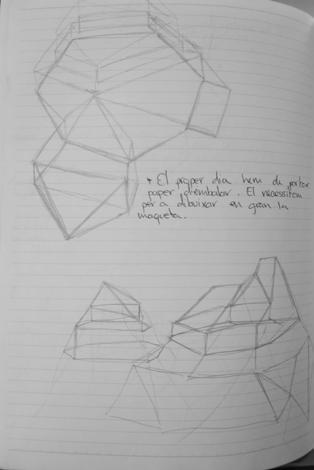 * El proper dia hem de portar
paper d'embalar. El necessitem
per a dibuixar en gran la
maqueta.